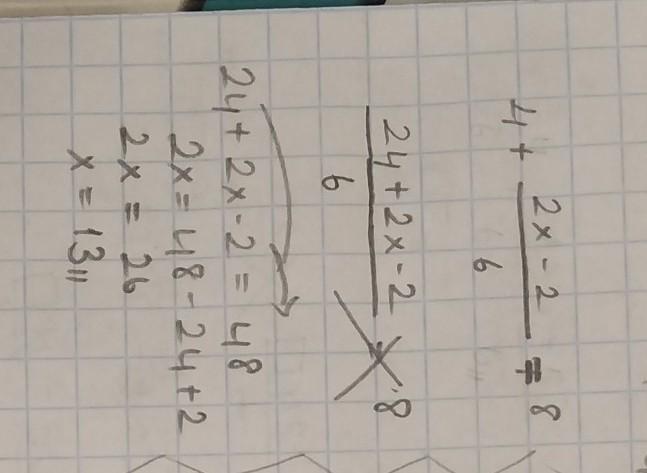 4 + (2x - 2)/6 = 8
(24 + 2x - 2)/6 = 8
24 + 2x - 2 = 48
2x = 48 - 24 + 2
2x = 26
x = 13 //